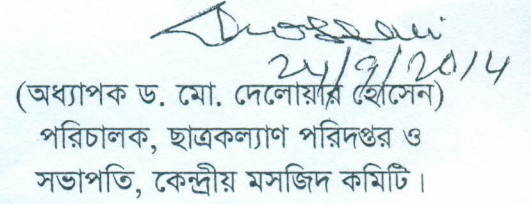 24/9/2014
(অধ্যাপক ড. মো. দেলোয়ার হোসেন)
পরিচালক, ছাত্রকল্যাণ পরিদপ্তর ও
সভাপতি, কেন্দ্রীয় মসজিদ কমিটি।